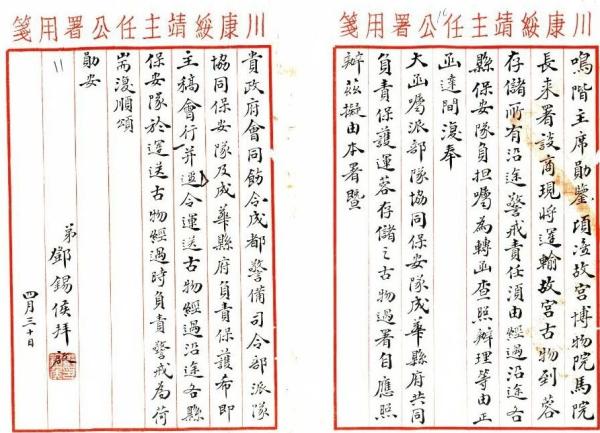 川康綏靖主任公署用箋
鳴階主席勛鑒頃准故宮博物院馬院
長來署談商現將運輸故宮古物到蓉
存儲所有沿途警戒責任須由經過沿途各
縣保安隊負担囑為轉函查照辦理等由正
函達間復奉
大函囑派部隊協同保安隊成華縣府共同
負責保護運蓉存儲之古物過署自應照
辦茲擬由本署暨
川康綏靖主任公署用箋
貴政府會同飭令成都警備司令部派隊
協同保安隊及成華縣府負責保護布即
主稿會行並通令運送古物經過沿途各縣
保安隊於運送古物經過時負責警戒為荷
耑復順頌
勛安
弟鄧錫侯拜啟
四月三十日
11